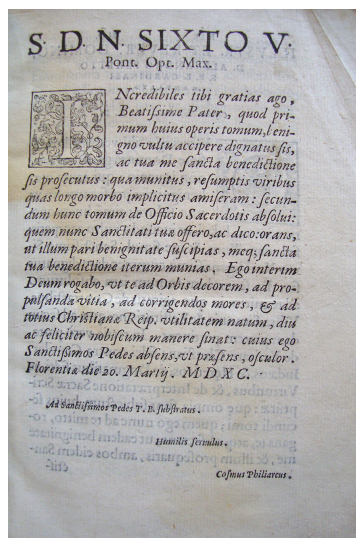 S. D. N. SIXTO V.
Pont. Opt. Max.
INcredibiles tibi gratias ago,
Beatissime Pater, quod pri-
mum huius operis tomum, beni-
gno vultu accipere dignatus sis,
ac tua me sancta benedictione
sis prosecutus: qua munitus, resumptis viribus
quas longo morbo implicitus amiseram: secun-
dum hunc tomum de Officio Sacerdotis absolui:
quem nunc Sanctitati tuæ offero, ac dico: orans,
ut illum pari benignitate suscipias, meq; sancta
tua benedictione iterum munias. Ego interim
Deum rogabo, vt te ad Orbis decorem, ad pro-
pulsanda vitia, ad corrigendos mores, & ad
totius Christianæ Reip. vtilitatem natum, diu
ac feliciter nobiscum manere sinat: cuius ego
Sanctißimos Pedes absens, vt præsens, osculor.
Florentiæ die 20. Martij. MDXC.
Ad Sanctissimos Pedes T. B. substratus.
Humilis seruulus.
Cosmus Philiarcus.